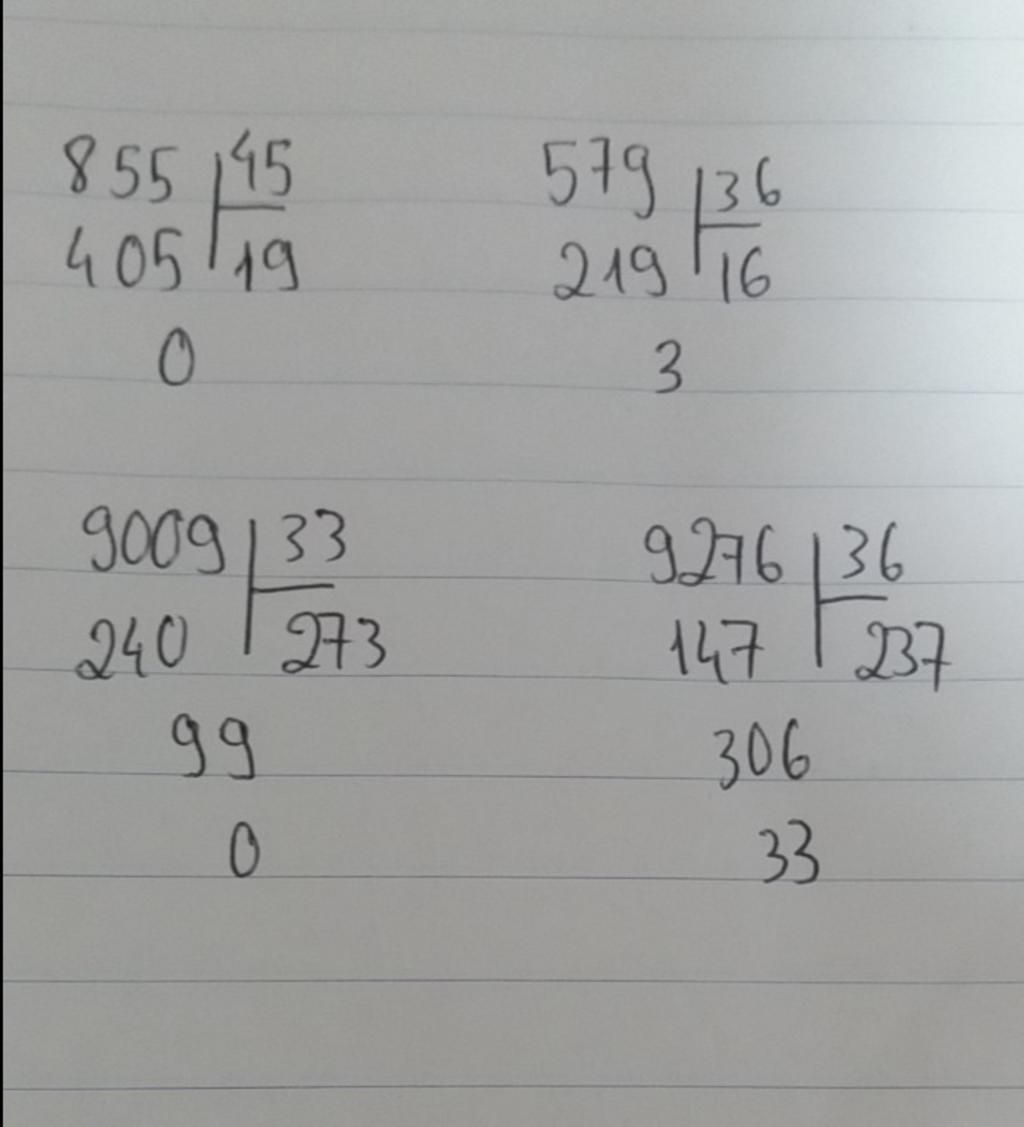 855 45 579 36
405 19 219 16
0 3
9009 33 9276 36
240 273 147 237
99 306
0 33